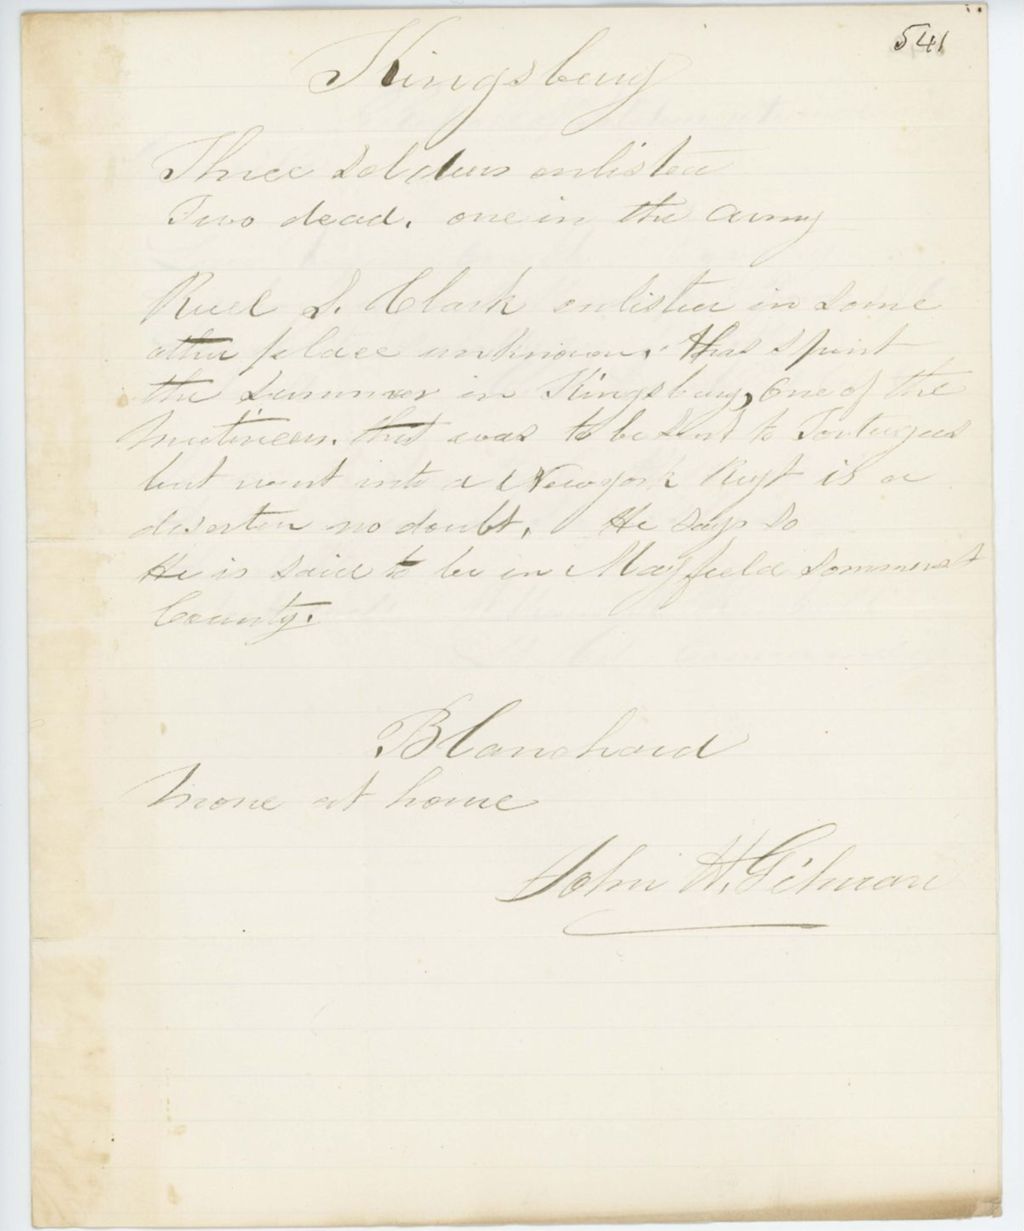 541
Kingsbury
Three Soldiers enlisted
Two dead. one in the army
Ruel S. Clark enlisted in some
other place unknown. Has spent
the summer in Kingsbury, One of the
mutineers. that was to be sent to Tortugas
but went into a Newyork Regt is a
deserter no doubt. He says so
He is said to be in Mayfield Sommerset
County.
Blanchard
None at home
John H. Gilman